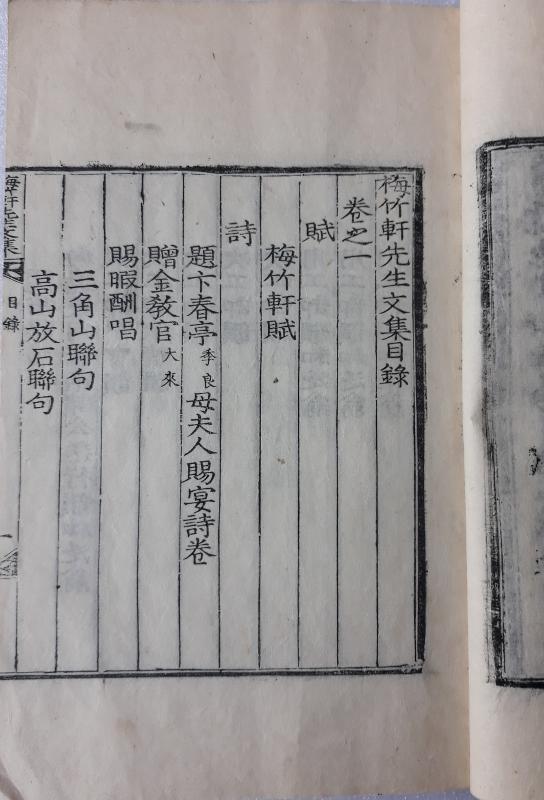 梅竹軒先生文集目錄
卷之一
賦
梅竹軒賦
詩
題卞春亭季良母夫人賜宴詩卷
贈金敎官大來
賜暇酬唱
三角山聯句
高山放石聯句
目錄